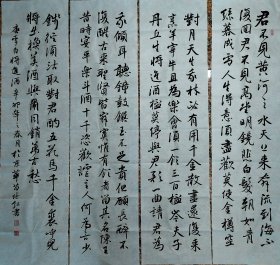 君不見黃河之水天上來奔流到海不
復回君不見高堂明鏡悲白髮朝如青
絲暮成雪人生得意須盡歡莫使金樽空
對月天生我材必有用千金散盡還復來
烹羊宰牛且為樂會須一飲三百杯岑夫子
丹丘生將進酒杯莫停與君歌一曲請君為
我傾耳聽鐘鼓饌玉不足貴但願長醉不
復醒古來聖賢皆寂寞惟有飲者留其名陳王
昔時宴平樂斗酒十千恣歡謔主人何為言少
錢徑須沽取對君酌五花馬千金裘呼兒
將出換美酒與爾同銷萬古愁
李白將進酒